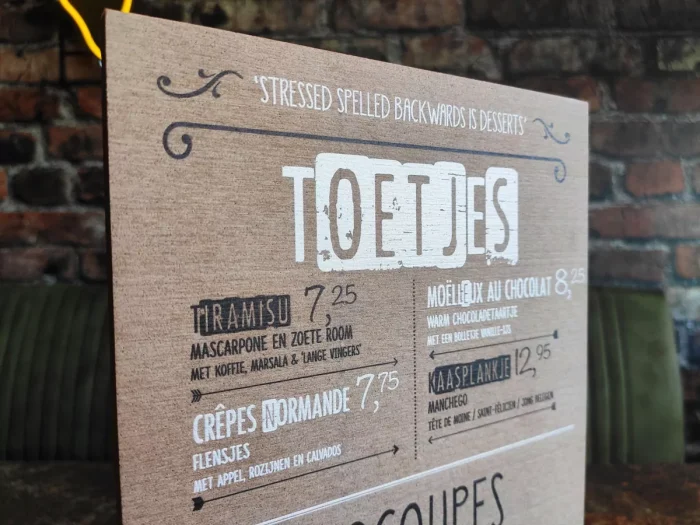 'STRESSED SPELLED BACKWARDS IS DESSERTS'
TOETJES
TIRAMISU 7,25
MASCARPONE EN ZOETE ROOM
MET KOFFIE, MARSALA & 'LANGE VINGERS'
CRÊPES NORMANDE 7,75
FLENSJES
MET APPEL, ROZIJNEN EN CALVADOS
MOËLLEUX AU CHOCOLAT 8,25
WARM CHOCOLADETAARTJE
MET EEN BOLLETJE VANILLE-IJS
KAASPLANKJE 12,95
MANCHEGO
TÊTE DE MOINE / SAINT-FÉLICIEN / JONG BELEGEN
COUPES